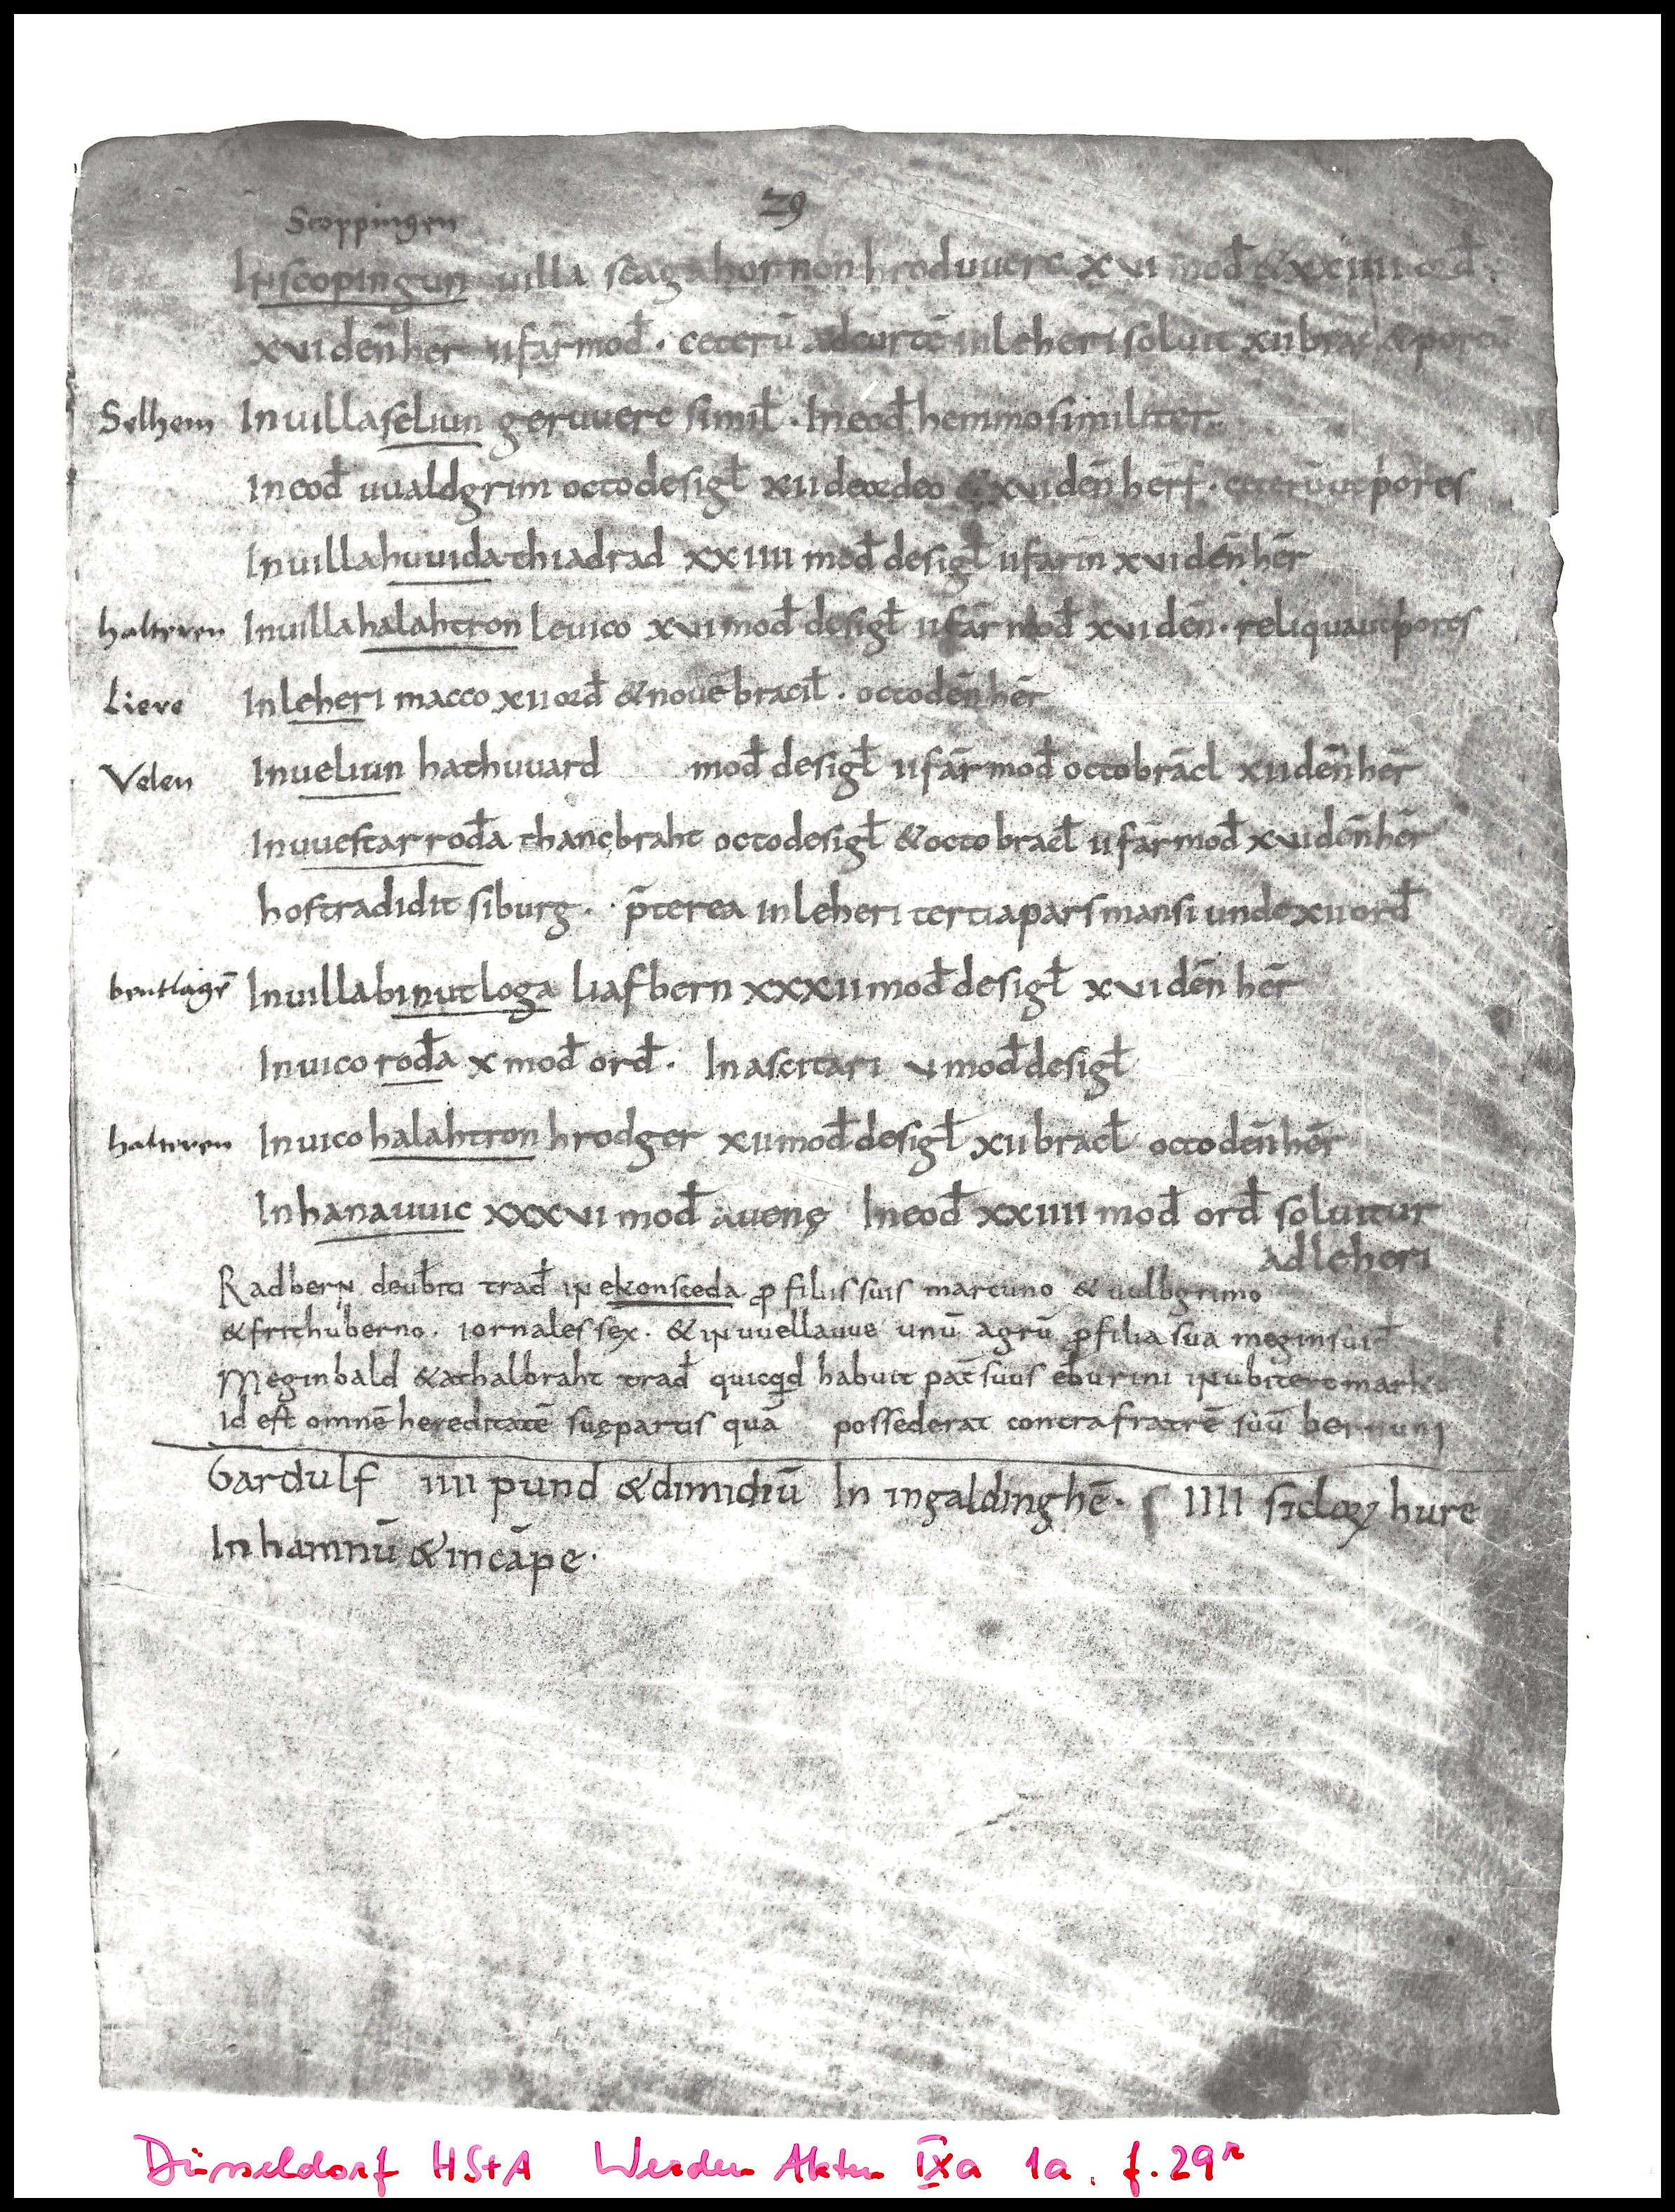 29
Scoppingen
In scopingun uilla scagahornon hroduuerc xvi mod̄ & xxiiii ord̄.
xvi den̄ her̄ ii far̄ mod̄. ceterū ad curtē in leheri soluit xii brac̄ & porcū
Selhem In uilla seliun geruuerc simil̄. In eod̄ hemmo similiter.
In eod̄ uualdgrim octo de sigł xii de ordeo & xvi den̄ her̄ſ. ceterū ut p̄ores
In uilla huuida thiadrad xxiiii mod̄ de sigł ii farīn xvi den̄ her̄
halteren In uilla halahtron leuico xvi mod̄ de sigł ii far̄ mod̄ xvi den̄. reliqua ut p̄ores
Liere In leheri macco xii ord̄ & nouē bracił. octo den̄ her̄
Velen In ueliun hathuuard mod̄ de sigł ii far̄ mod̄ octo brac̄l xii den̄ her̄
In uuestarrod̄a thancbraht octo de sigł & octo bracł ii far̄ mod̄ xvi den̄ her̄
hos tradidit siburg. p̄terea in leheri tertia pars mansi unde xii ord̄
bentlagē In uilla binutloga liafbern xxxii mod̄ de sigł xvi den̄ her̄
In uico rod̄a x mod̄ ord̄. In ascitari v mod̄ de sigł
halteren In uico halahtron hrodger xii mod̄ de sigł xii bracł octo den̄ her̄
In hanauuic xxxvi mod̄ auenę In eod̄ xxiiii mod̄ ord̄ soluitur
ad leheri
Radbern deub̄iti trad̄ in ekonsceda ꝓ filiis suis marcuno & uulbgrimo
& frithuberno. iornales sex. & in uuellauue unū agrū ꝓ filia sua meginsuid̄
Meginbald & athalbraht trad̄ quicq̄d habuit pat̄ suus eburini in ubiteromarku
id est omnē hereditatē suę partis quā possederat contra fratrē suū bernuni
Gardulf iiii pund & dimidiū In ingaldinghē. ſ IIII siclorꝝ hure
In hamnū & in cāpe.
Düsseldorf HStA Werden Akten IXa 1a, f. 29r